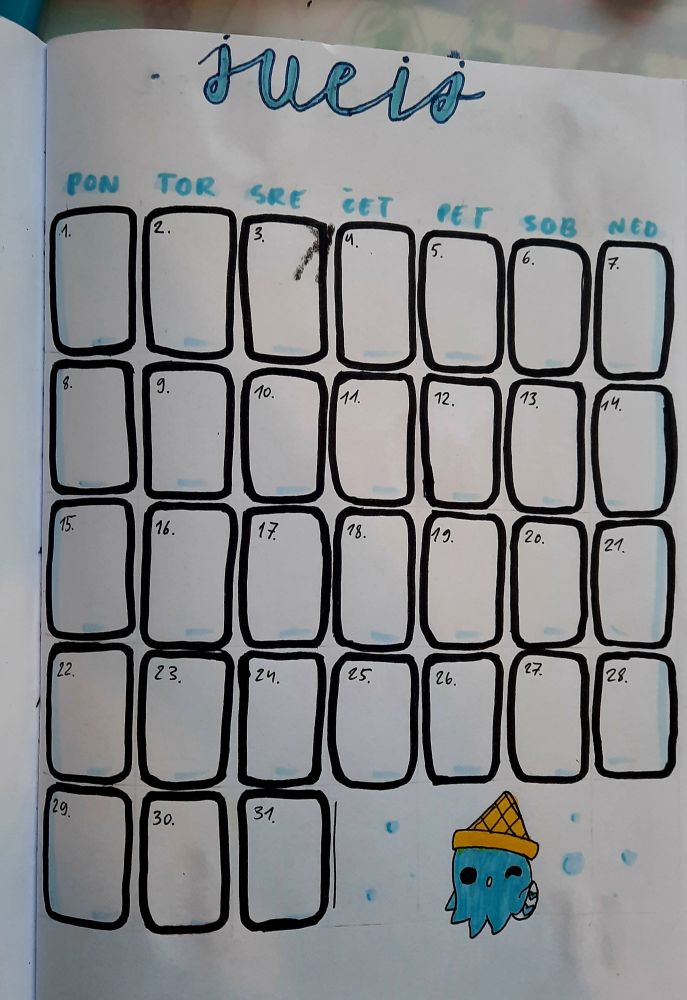 julij
PON TOR SRE ČET PET SOB NED
1. 2. 3. 4. 5. 6. 7.
8. 9. 10. 11. 12. 13. 14.
15. 16. 17. 18. 19. 20. 21.
22. 23. 24. 25. 26. 27. 28.
29. 30. 31.